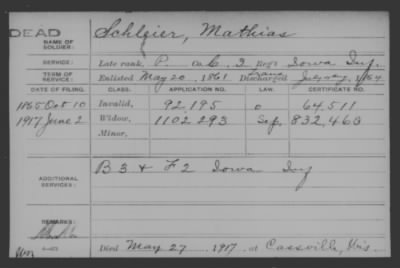 DEAD
NAME OF SOLDIER: Schleier, Mathias
SERVICE: Late rank, P Co. C, 3 Reg't Iowa Inf.
TERM OF SERVICE: Enlisted May 20, 1861 Trans Discharged July 1864
DATE OF FILING. CLASS. APPLICATION NO. LAW. CERTIFICATE NO.
1865 Oct 10 Invalid, 92,195 o 64,511
1917 June 2 Widow, 1102,293 Sep. 832,460
Minor,
ADDITIONAL SERVICES:
B 3 & F 2 Iowa Inf
REMARKS:
Died May 27, 1917, at Cassville, Wis.